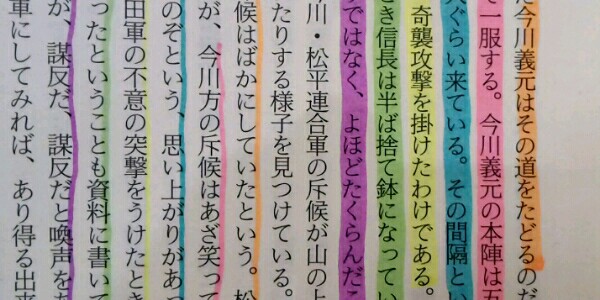 今川義元はその道をたどるのだ
て一服する。今川義元の本陣は五
ぐらい来ている。その間隔とい
奇襲攻撃を掛けたわけである。
き信長は半ば捨て鉢になってい
ではなく、よほどたくらんだこ
川・松平連合軍の斥候が山の上
たりする様子を見つけている。
候はばかにしていたという。松
が、今川方の斥候はあざ笑って
のぞという、思い上がりがあっ
田軍の不意の突撃をうけたとき
ったということも資料に書いて
が、謀反だ、謀反だと喚声をあ
軍にしてみれば、あり得る出来